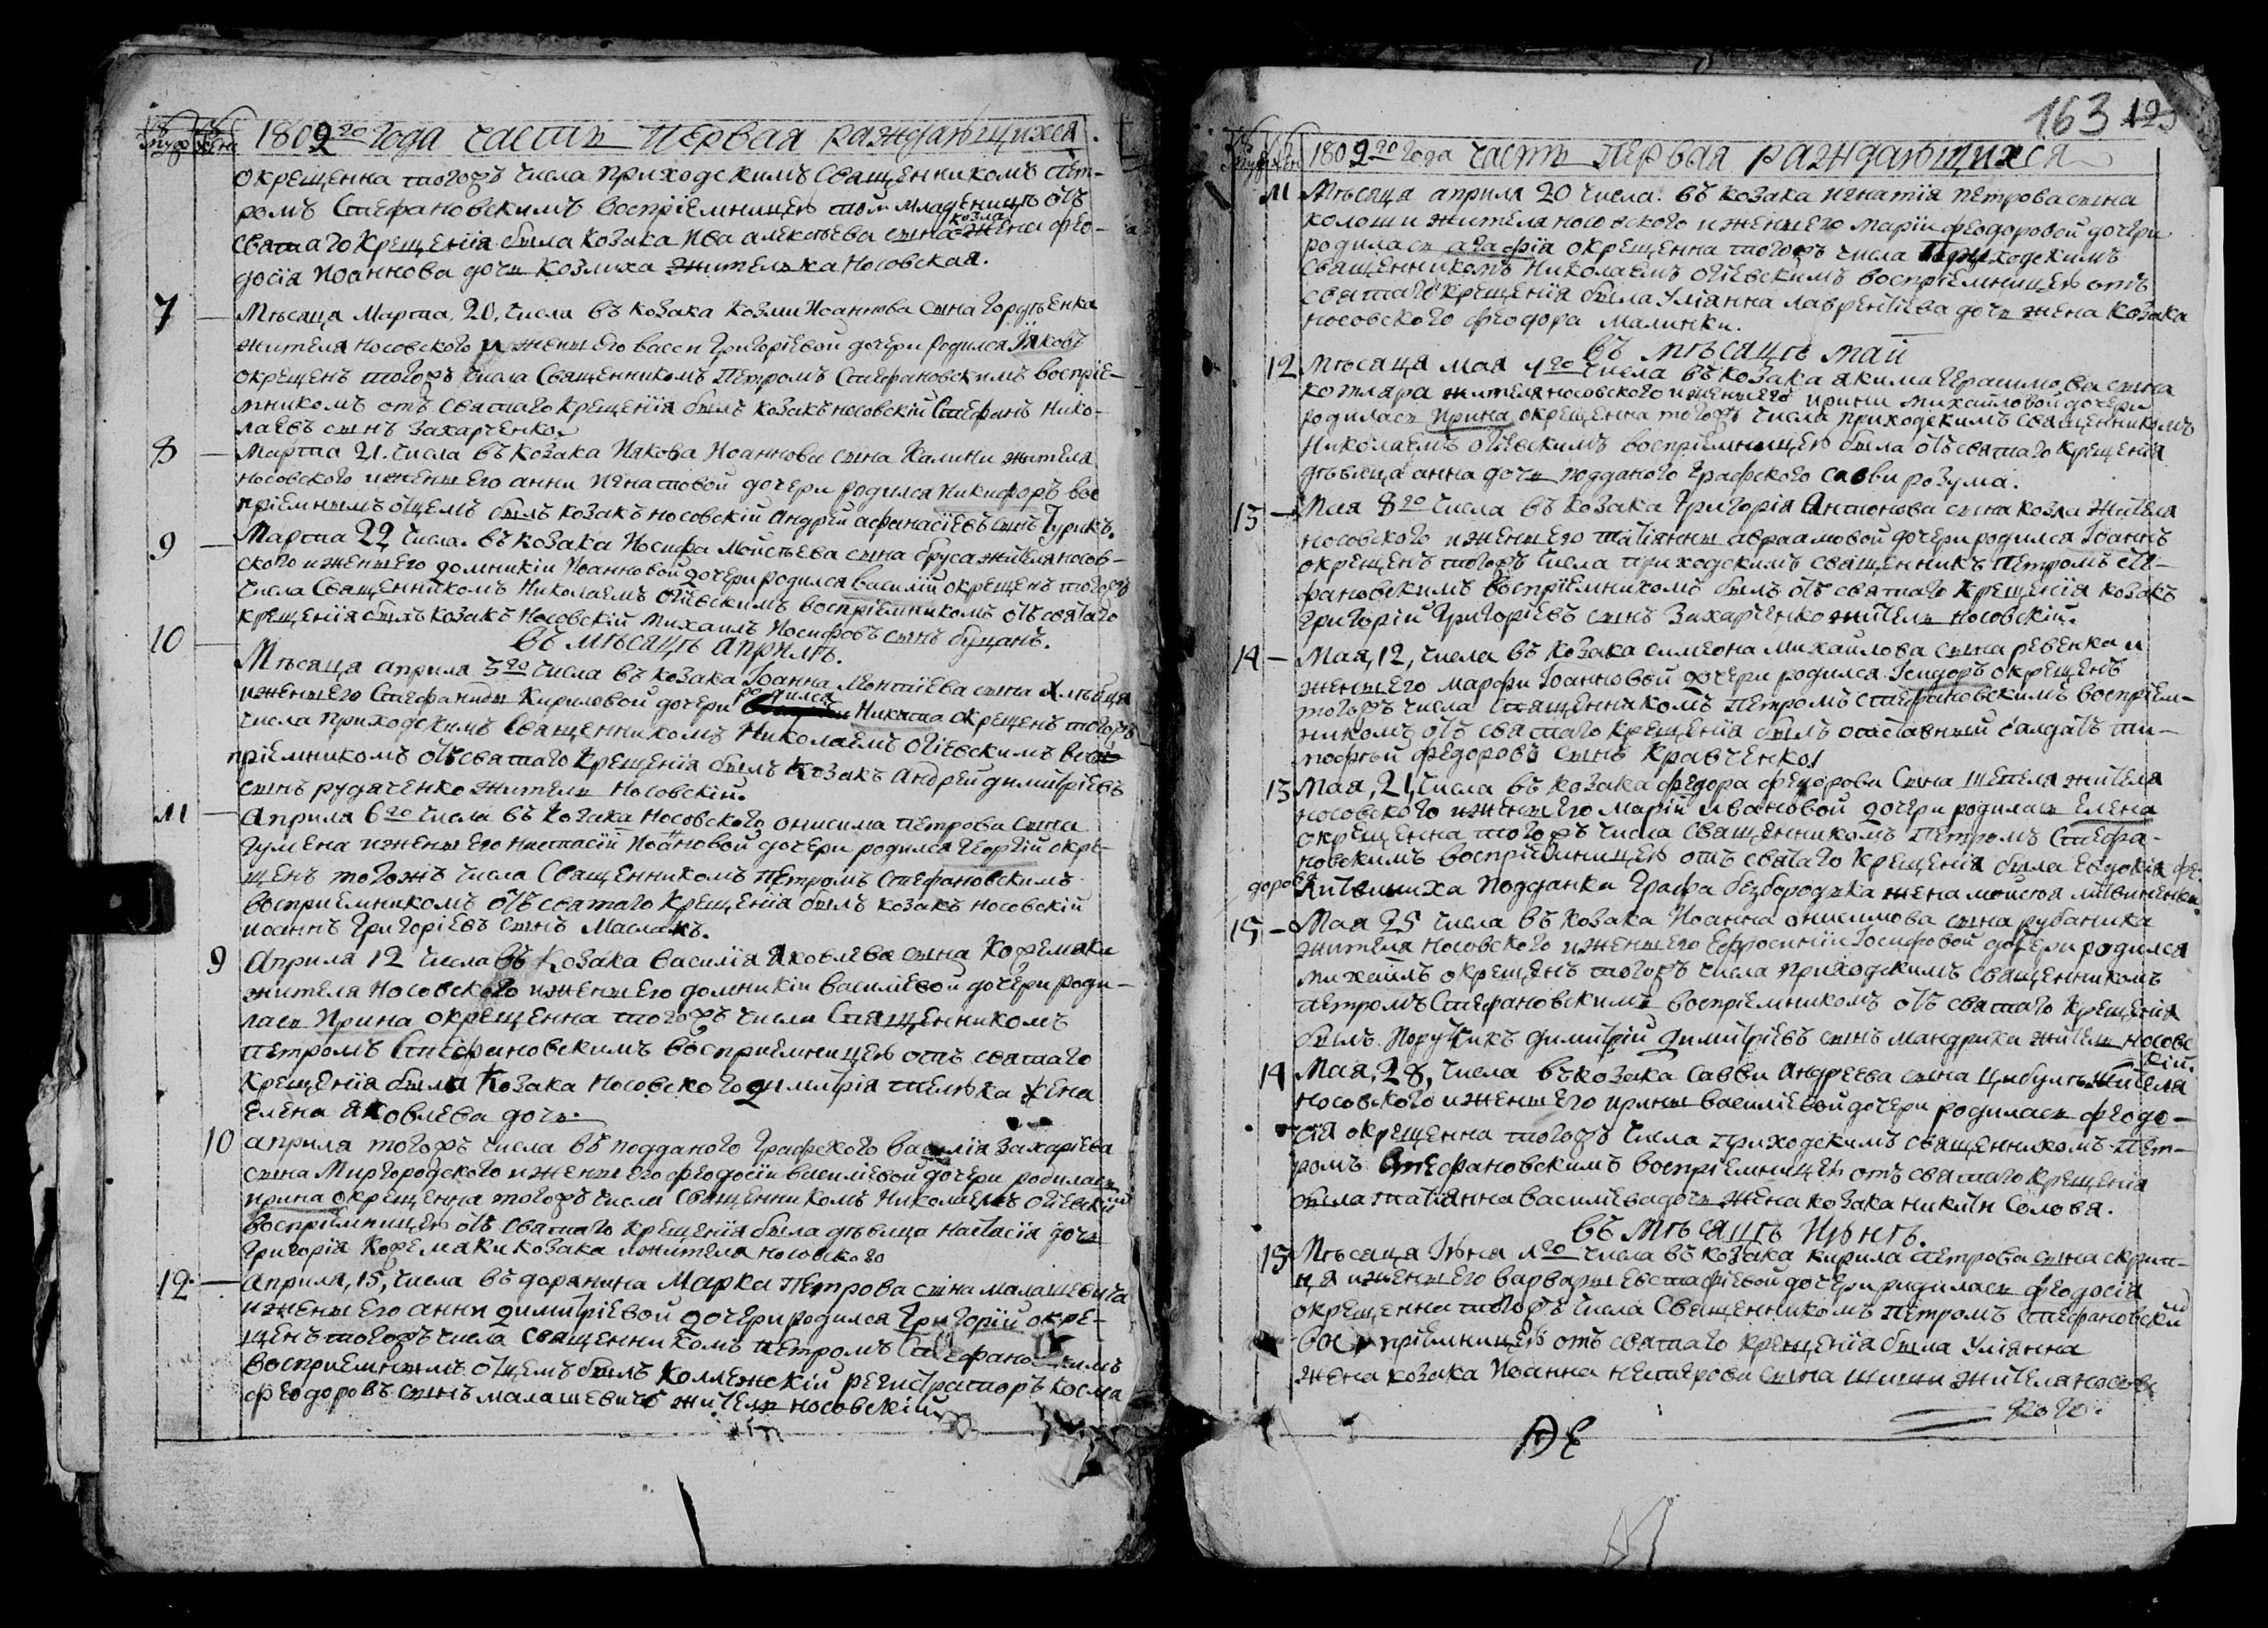 1809го года часть первая раждающихся.
окрещенна тогожъ числа приходскимъ Священникомъ Пет-
ромъ Стефановскимъ воспріемницею той младеницѣ отъ
святаго крещенія была козака Ива алексѣева сына козла жена Ѳео-
досія Иоаннова дочь козлиха жителька Носовская.
7 — Мѣсяца Марта, 20, числа въ козака Козми Иоаннова сына
жителя носовского и жены его васси Григоріевой дочери родился Іяковъ
окрещенъ тогожъ числа Священникомъ Петромъ Стефановскимъ воспріе-
мникомъ отъ святаго крещенія былъ козакъ носовскій Стефанъ Нико-
лаевъ сынъ Захарченко
8 — Марта 21. числа въ козака Иякова Иоаннова сына Калини жителя
носовского и жены его анни Игнатовой дочери родился Никифоръ вос
пріемнымъ отцемъ былъ козакъ носовскій Андрій афанасіевъ сынъ Гурикъ.
9 — Марта 22 числа. въ козака Иосифа Моисѣева сына бруса жителя носов-
ского и жены его домникіи Иоанновой дочери родился василій окрещенъ тогожъ
числа Священникомъ Николаемъ огіевскимъ воспріемникомъ отъ святаго
крещенія былъ козакъ Носовскій михаилъ Иосифовъ сынъ буцанъ.
въ мѣсяцѣ априлѣ.
10 — Мѣсяца априля 5го числа въ козака Іоанна сына
и жены его Стефаниды Кириловой дочери родился Никита окрещенъ тогожъ
числа приходскимъ Священникомъ Николаемъ огіевскимъ вос
пріемникомъ отъ святаго крещенія былъ козакъ Андрей димитріевъ
сынъ рудаченко житель Носовскій.
11 — априля 6го числа въ козака носовского онисима петрова сына
гумена и жены его Настасіи Иоанновой дочери родился Георгій окре-
щенъ тогожъ числа Священникомъ Петромъ Стефановскимъ
воспріемникомъ отъ святаго крещенія былъ козакъ носовскій
иоаннъ Григоріевъ сынъ Маслакъ.
9 Априля 12 числа въ козака василія Яковлева сына Кожемяки
жителя Носовского и жены его домникіи василіевой дочери роди-
лась Ирина окрещенна тогожъ числа Священникомъ
петромъ Стефановскимъ воспріемницею отъ святаго
крещенія была козака Носовского димитрія жена
елена яковлева дочь.
10 априля тогожъ числа въ подданого Графского василія Захаріева
сына Миргородского и жены его феодосіи василіевой дочери родилась
ирина окрещенна тогожъ числа Священникомъ Николаемъ огіевским
воспріемницею отъ святаго крещенія была дѣвица настасія дочь
Григорія Кожемяки козака жителя носовского
12. — априля, 15, числа въ дорянина Марка Петрова сына малашевича
и жены его анни димитріевой дочери родился Григорій окре-
щенъ тогожъ числа Священникомъ петромъ Стефановскимъ
воспріемнымъ отцемъ былъ коллежскій регистраторъ Косма
феодоровъ сынъ малашевичъ житель носовскій
163 123
1809го года часть первая раждающихся
11 Мѣсяца априля 20 числа. въ козака игнатія петрова сына
колоши жителя носовского и жены его маріи феодоровой дочери
родилась агафія окрещенна тогожъ числа приходскимъ
Священникомъ Николаемъ огіевскимъ воспріемницею отъ
святаго крещенія была Уліянна лаврентіева дочь жена козака
носовского феодора Малинки.
въ мѣсяцѣ маи
12 мѣсяца мая числа въ козака якима Герасимова сына
котляра жителя носовского и жены его ирины михаиловой дочери
родилась Ирина окрещенна тогожъ числа приходскимъ священникомъ
Николаемъ огіевскимъ воспріемницею была отъ святаго крещенія
дѣвица анна дочь подданого Графского саввы розума.
13 — Мая 8го числа въ козака Григорія антонова сына козла жителя
носовского и жены его татіянны авраамовой дочери родился Іоаннъ
окрещенъ тогожъ числа приходскимъ священникъ Петромъ сте-
фановскимъ воспріемникомъ былъ отъ святаго крещенія козакъ
григорій Григоріевъ сынъ Захарченко житель носовскій.
14 — Мая, 12, числа въ козака симеона михайлова сына ревенка и
жены его марфи Іоанновой дочери родился Ісидоръ окрещенъ
тогожъ числа священникомъ петромъ стефановскимъ воспріем-
никомъ отъ святаго крещенія былъ отставный салдатъ ти-
мофѣй федоровъ сынъ Кравченко
13 Мая, 21, числа въ козака федора федорова сына шепеля жителя
носовского и жены его маріи ивановой дочери родилась Елена
окрещенна тогожъ числа священникомъ Петромъ Стефа-
новскимъ воспріемницею отъ святаго крещенія была Евдокія фе-
дорова литвиниха подданки Графа безбородька жена мойсея литвиненка
15 — Мая 25 числа въ козака Иоанна онисимова сына рубаника
жителя носовского и жены его Ефросиніи Іосифовой дочери родился
михаилъ окрещенъ тогожъ числа приходскимъ священникомъ
петромъ Стефановскимъ воспріемникомъ отъ святаго крещенія
былъ Поручикъ димитрій димитріевъ сынъ мандрика житель носовс
кій.
14 Мая, 28, числа въ козака саввы андреева сына цибулѣ жителя
носовского и жены его ирины василіевой дочери родилась феодо-
сія окрещенна тогожъ числа приходскимъ священникомъ Пет-
ромъ стефановскимъ воспріемницею отъ святаго крещенія
была татіянна василіева дочь жена козака никити Соловя.
въ мѣсяцѣ июнѣ.
15 Мѣсяца Іюня 1го числа въ козака кирила петрова сына скрип-
ця и жены его варвары евстафіевой дочери родилась феодосія
окрещенна тогожъ числа священникомъ петромъ стефановским
воспріемницею отъ святаго крещенія была Уліянна
жена козака Иоанна нестерова сына жителя носовс
кого.